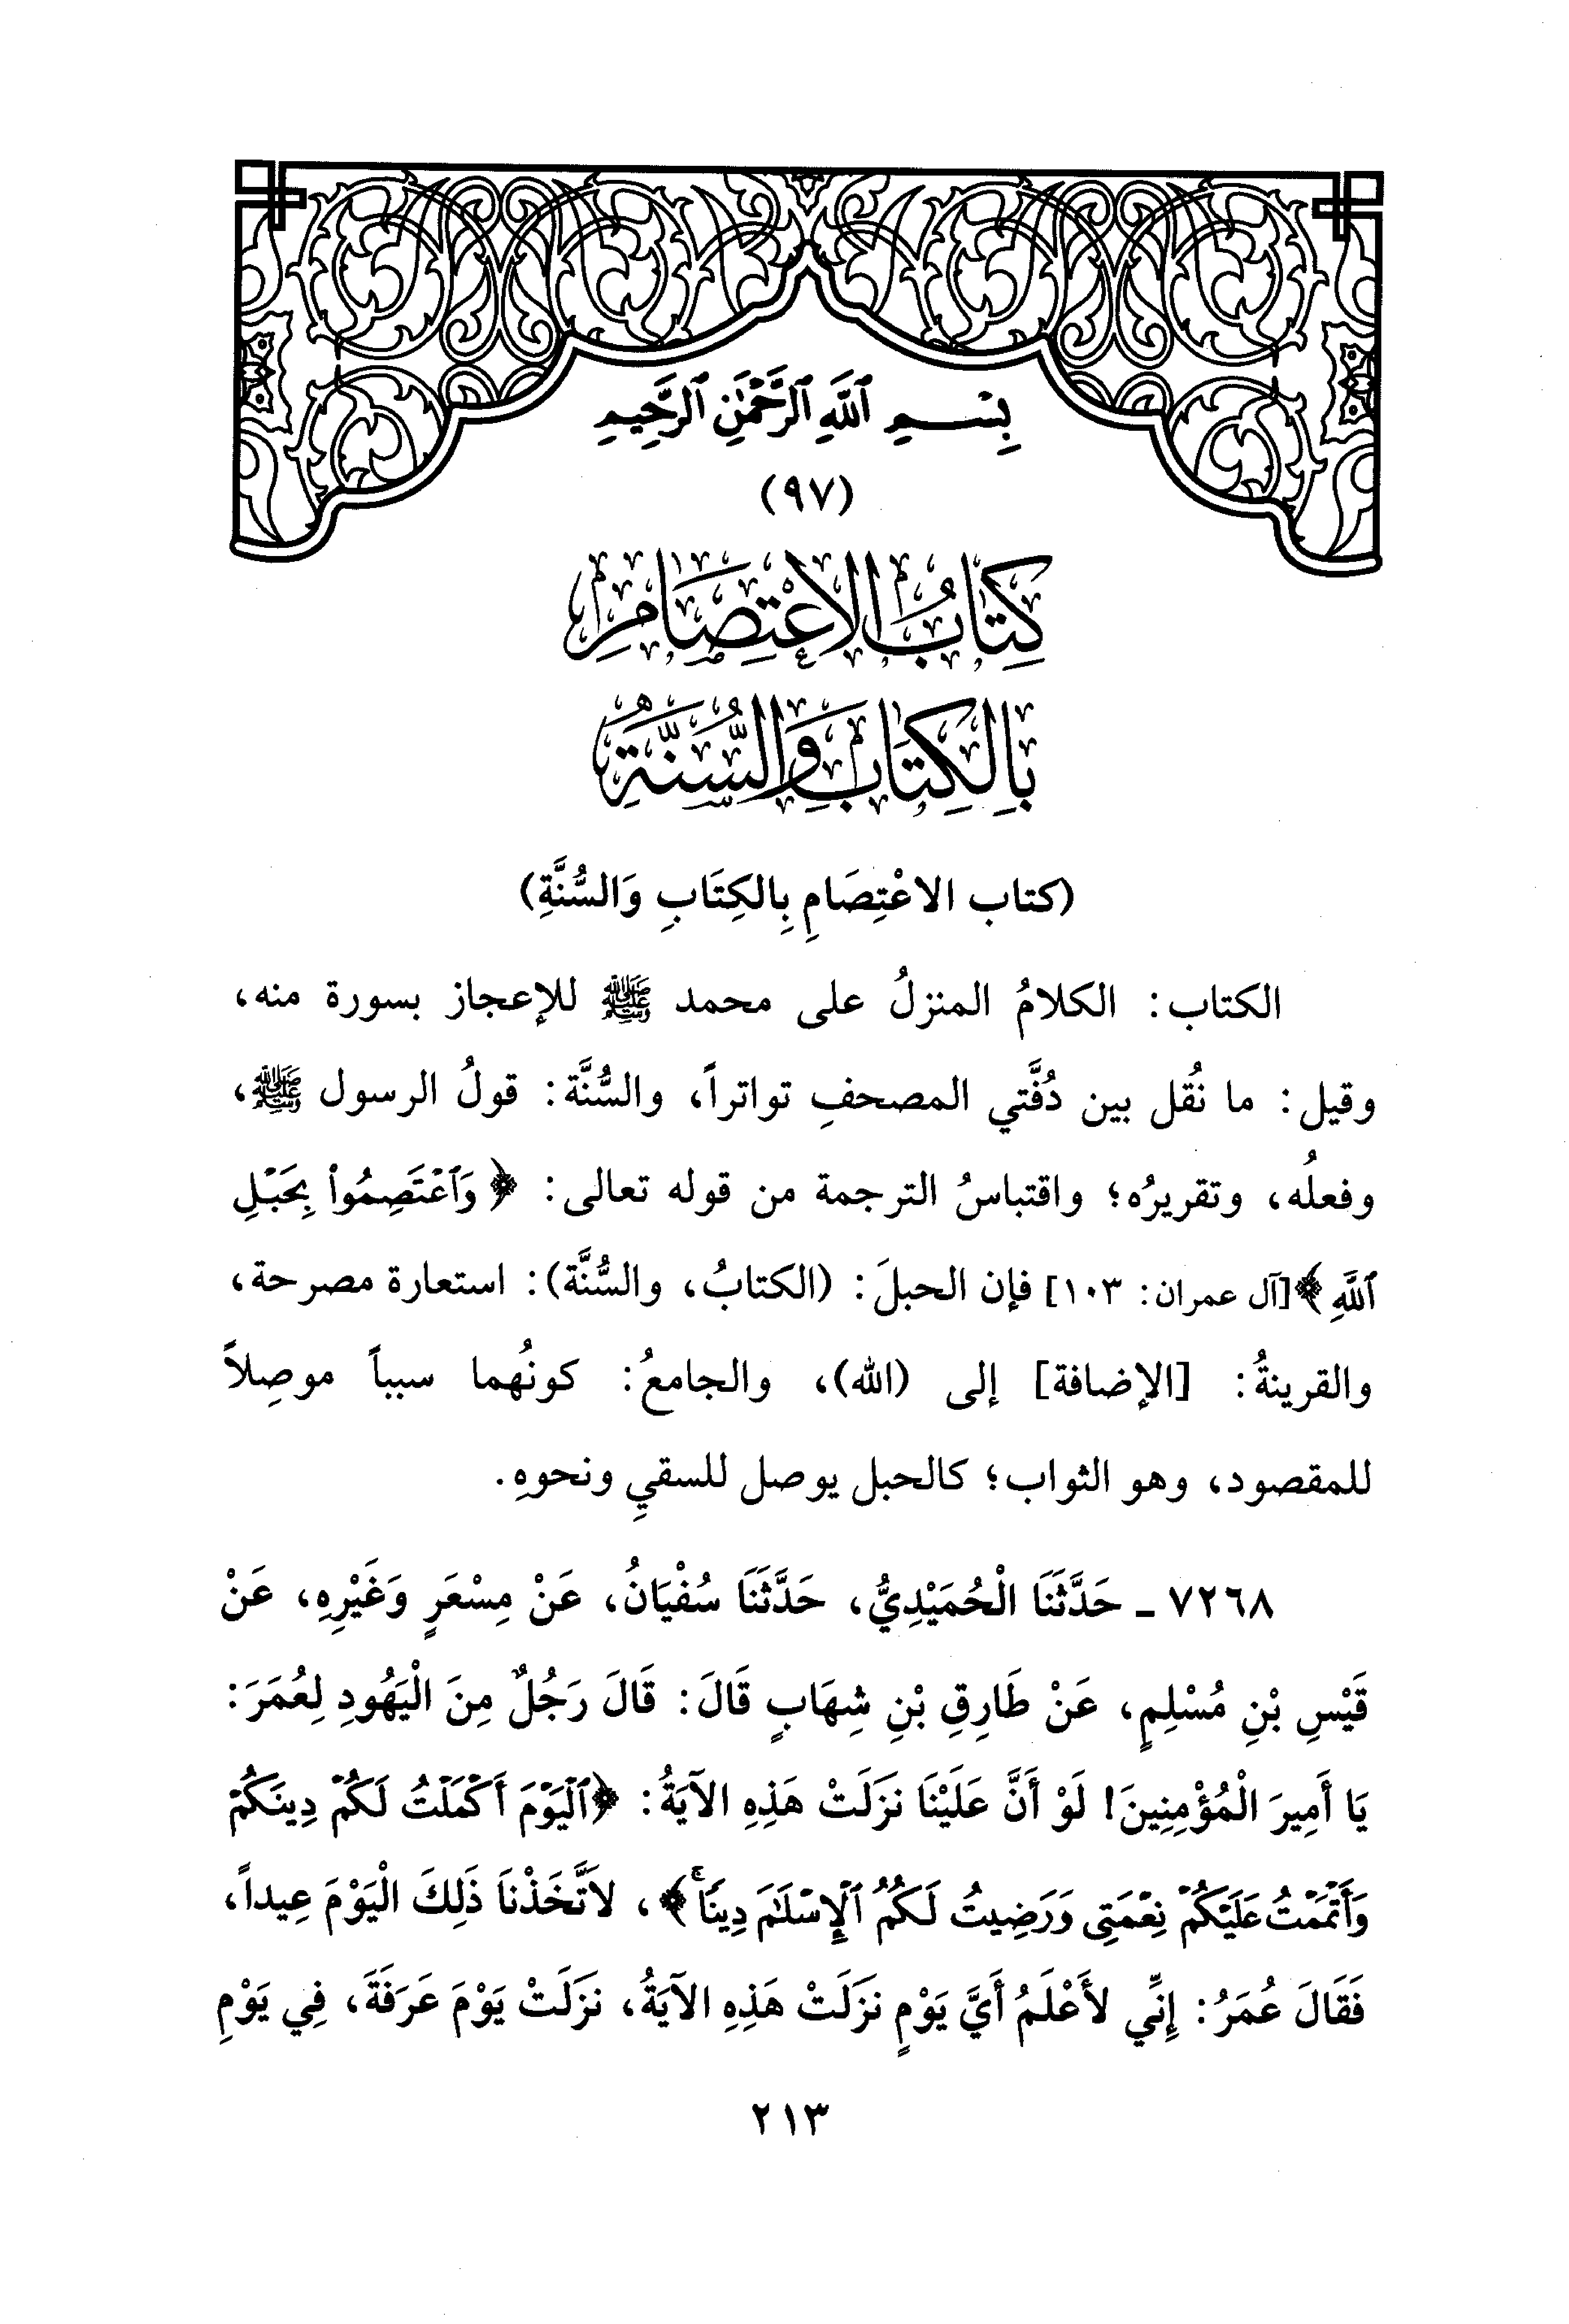 بِسْمِ ٱللَّهِ ٱلرَّحْمَٰنِ ٱلرَّحِيمِ
(٩٧)
كِتَابُ الاعْتِصَامِ
بِالْكِتَابِ وَالسُّنَّةِ
(كتاب الاعْتِصَامِ بِالكِتَابِ وَالسُّنَّةِ)
الكتاب: الكلامُ المنزلُ على محمد ﷺ للإعجاز بسورة منه،
وقيل: ما نُقل بين دُفَّتي المصحفِ تواتراً، والسُّنَّة: قولُ الرسول ﷺ،
وفعلُه، وتقريرُه؛ واقتباسُ الترجمة من قوله تعالى: ﴿وَٱعْتَصِمُوا۟ بِحَبْلِ
ٱللَّهِ﴾[آل عمران: ١٠٣] فإن الحبلَ: (الكتابُ، والسُّنَّة): استعارة مصرحة،
والقرينةُ: [الإضافة] إلى (الله)، والجامعُ: كونُهما سبباً موصِلاً
للمقصود، وهو الثواب؛ كالحبل يوصل للسقيِ ونحوِه.
٧٢٦٨ ـ حَدَّثَنَا الْحُمَيْدِيُّ، حَدَّثَنَا سُفْيَانُ، عَنْ مِسْعَرٍ وَغَيْرِهِ، عَنْ
قَيْسِ بْنِ مُسْلِمٍ، عَنْ طَارِقِ بْنِ شِهَابٍ قَالَ: قَالَ رَجُلٌ مِنَ الْيَهُودِ لِعُمَرَ:
يَا أَمِيرَ الْمُؤْمِنِينَ! لَوْ أَنَّ عَلَيْنَا نَزَلَتْ هَذِهِ الآيَةُ: ﴿ٱلْيَوْمَ أَكْمَلْتُ لَكُمْ دِينَكُمْ
وَأَتْمَمْتُ عَلَيْكُمْ نِعْمَتِى وَرَضِيتُ لَكُمُ ٱلْإِسْلَٰمَ دِينًا ۚ﴾، لاَتَّخَذْنَا ذَلِكَ الْيَوْمَ عِيداً،
فَقَالَ عُمَرُ: إِنِّي لأَعْلَمُ أَيَّ يَوْمٍ نَزَلَتْ هَذِهِ الآيَةُ، نَزَلَتْ يَوْمَ عَرَفَةَ، فِي يَوْمِ
٢١٣